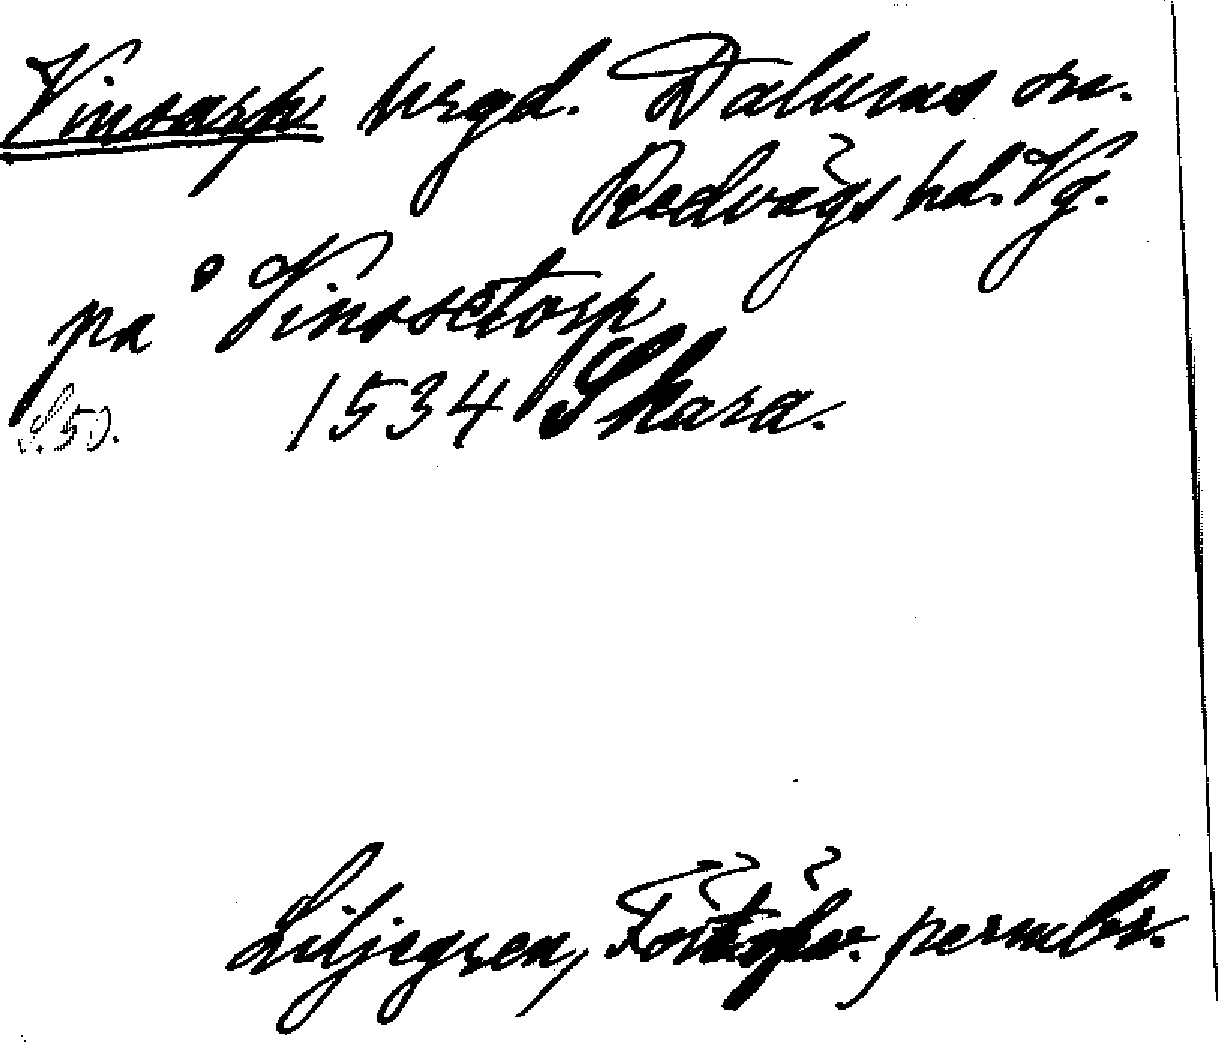 Vinsarp hrgd. Dalums sn.
Redvägs hd. Vg.
på Vinssetorp
S. 50. 1534 Skara.
Liljegren, Förtäln. permbr.